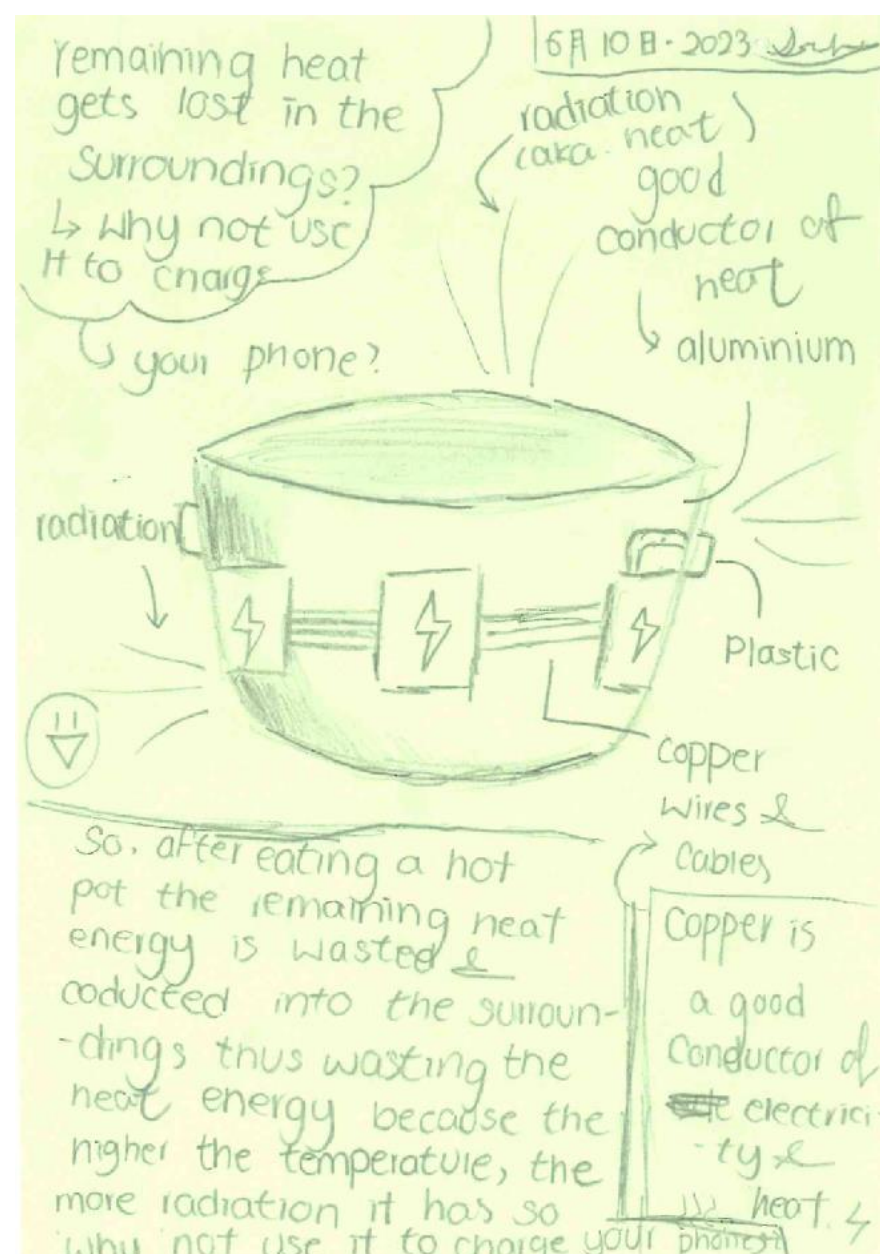 remaining heat
gets lost in the
surroundings?
↳ why not use
it to charge
your phone?
6月10日·2023
radiation
(aka. heat)
good
conductor of
heat
aluminium
radiation
Plastic
copper
wires &
cables
So, after eating a hot
pot the remaining heat
energy is wasted &
coducted into the surroun-
-dings thus wasting the
heat energy because the
higher the temperature, the
more radiation it has so
why not use it to charge your phones?
Copper is
a good
conductor of
electrici-
-ty &
heat.